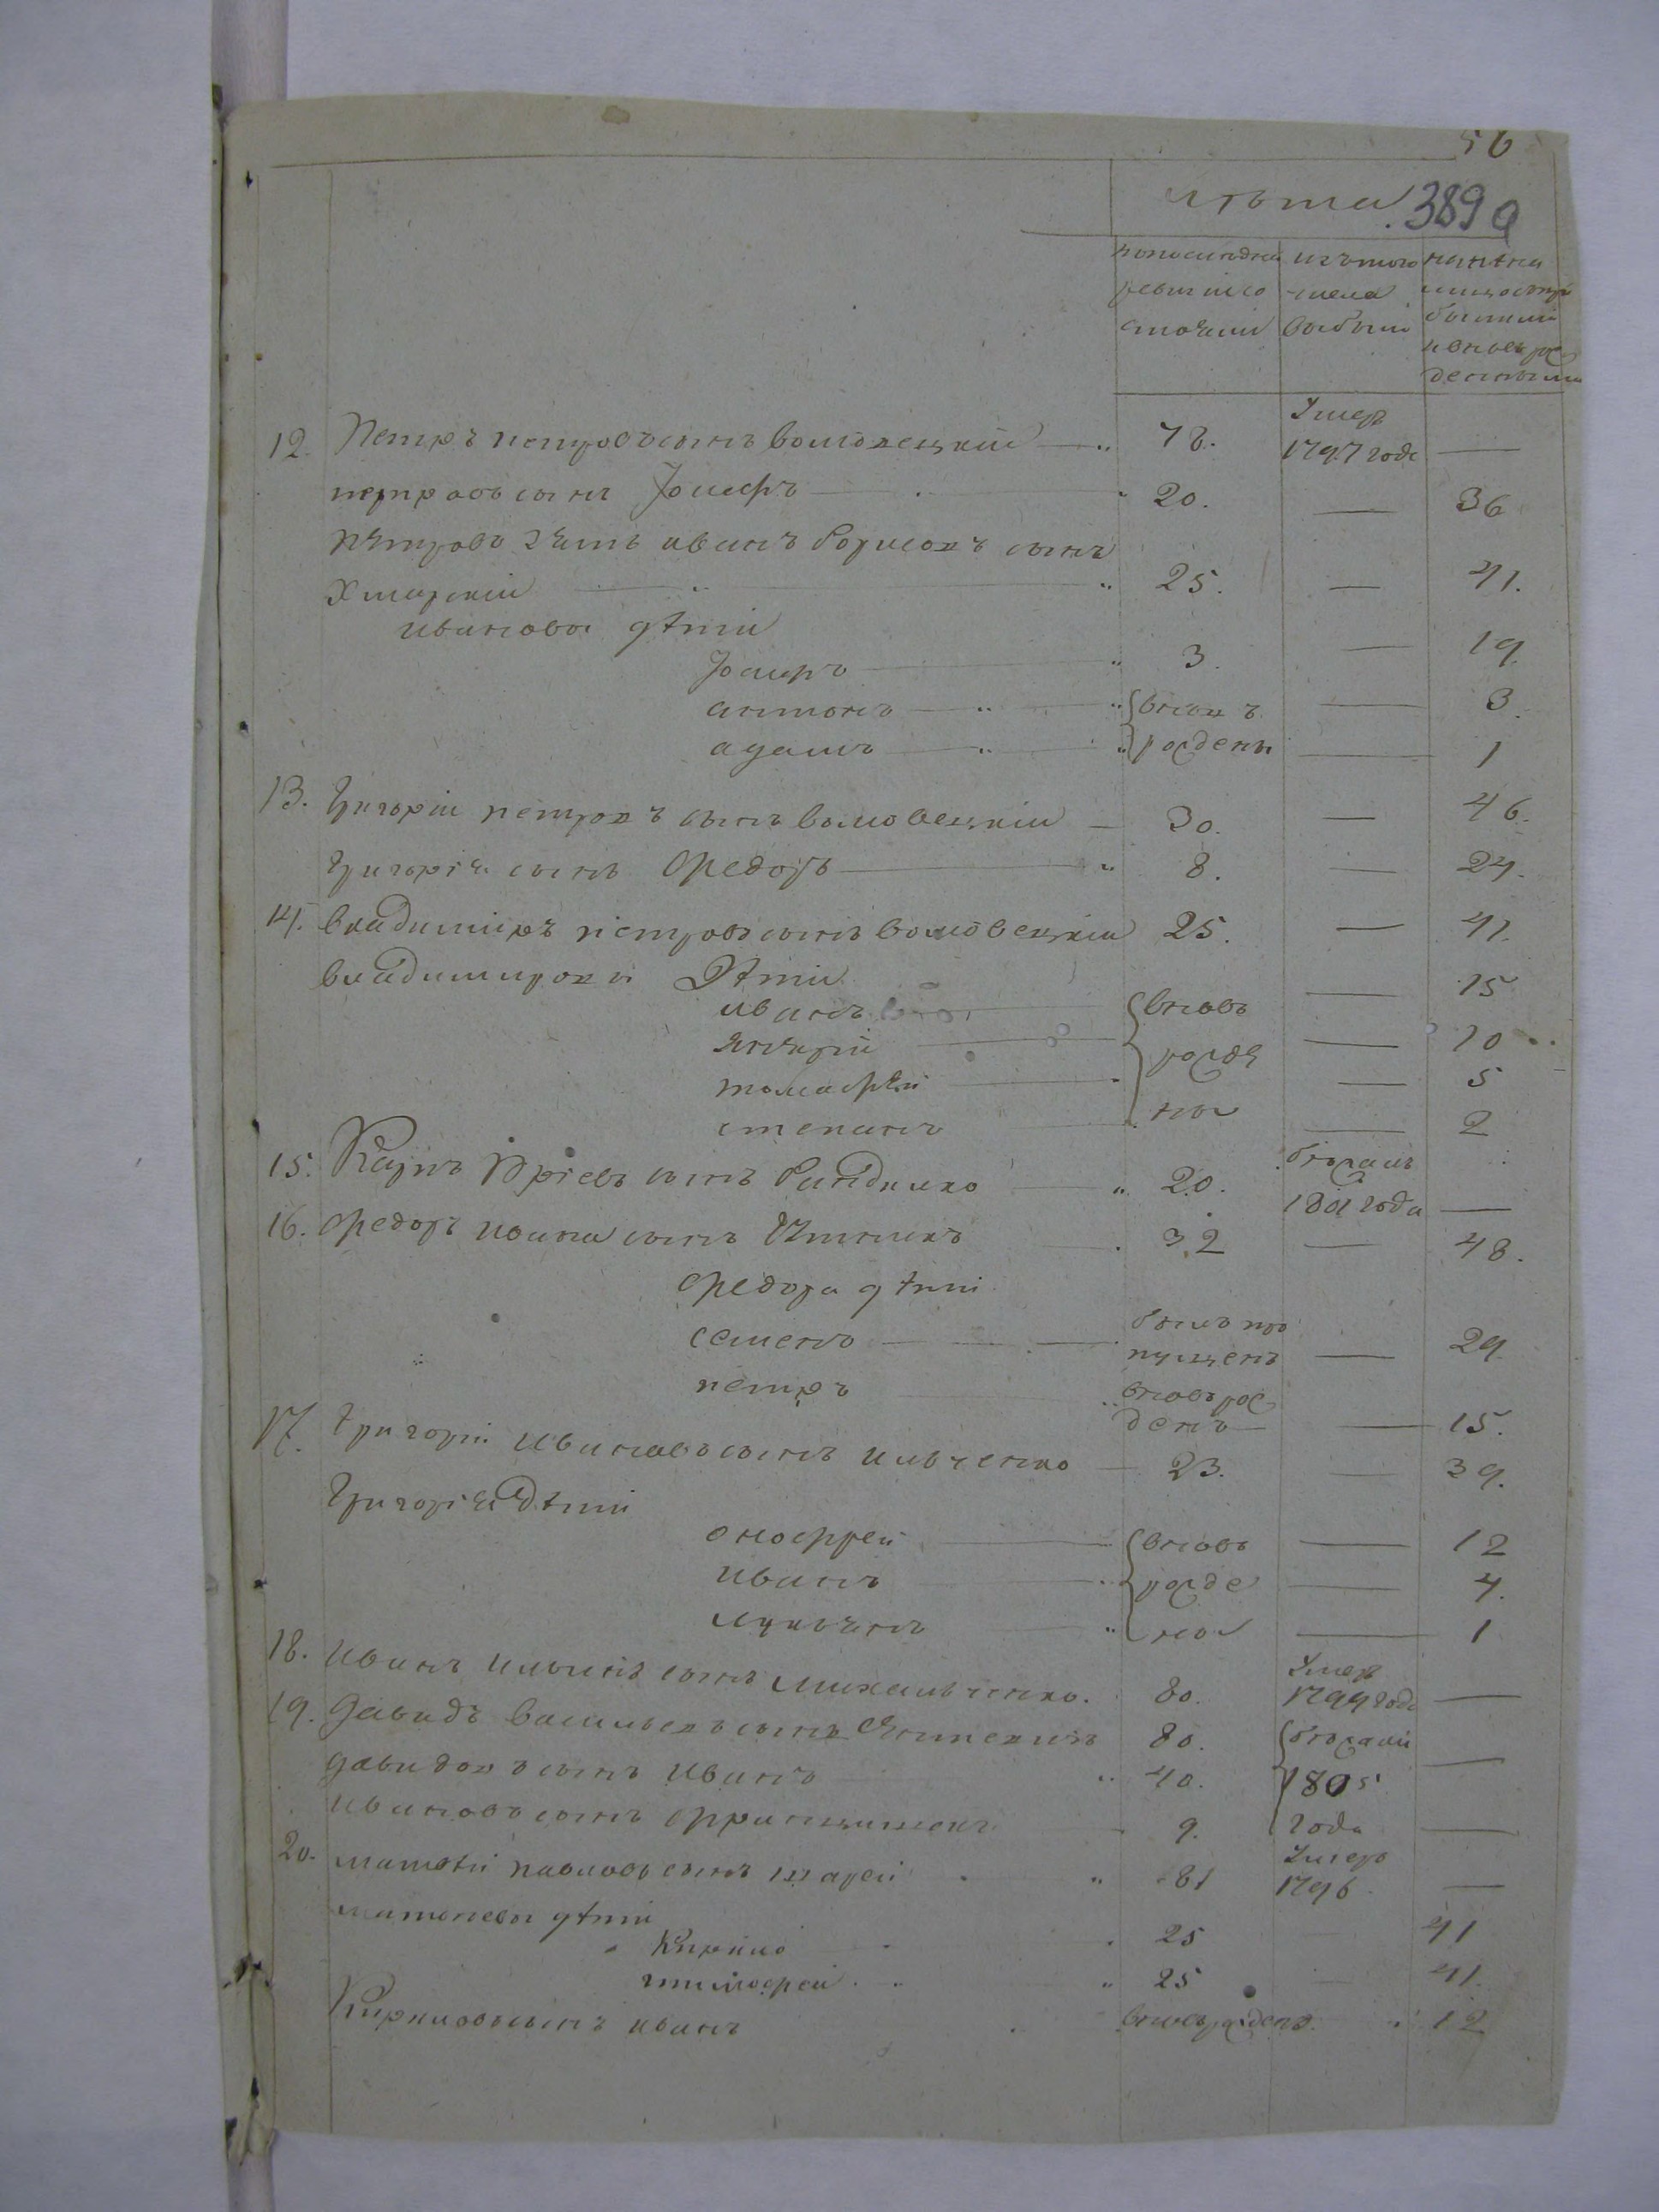 56
лѣта 389 а
попоследней изъ того
ревизіи со числа
стояли выбыли
12. Петръ петровъ сынъ воловецкій 78. Умеръ
1797 года —
петровъ сынъ Іосифъ 20. — 36
Петровъ зять иванъ борисовъ сынъ
Хмарскій 25. — 41.
ивановы дѣти
Іосифъ 3. — 19.
антонъ вновь — 3.
адамъ рождены — 1
13. Григорій петровъ сынъ воловецкій 30. — 46.
Григорія сынъ Федоръ 8. — 24.
14. владимиръ петровъ сынъ воловецкій 25. — 41.
владимировы Дѣти
иванъ вновь — 15
рожде — 10
— 5
степанъ ны — 2
15. Карпъ Юріевъ сынъ 20. бежалъ
1801 года —
16. Федоръ сынъ 32 — 48.
Федора дѣти
семенъ былъ про
пущенъ — 29
петръ вновь рож
денъ — 15.
17. Григорій ивановъ сынъ ильченко 23. — 39.
Григорія Дѣти
онофрей вновь — 12
иванъ рожде — 4.
лукьянъ ны — 1
18. иванъ ильинъ сынъ михальченко. 80. Умеръ
1799 года —
19. давидъ васильевъ сынъ 80. бежали —
давидовъ сынъ иванъ 40. 1805
ивановъ сынъ францишекъ 9. года —
20. матвѣй павловъ сынъ 81 Умеръ
1796 —
матвеевы дѣти
Кирило 25 — 41
тимофей 25 — 41.
Кириловъ сынъ иванъ вновь рожденъ. 12